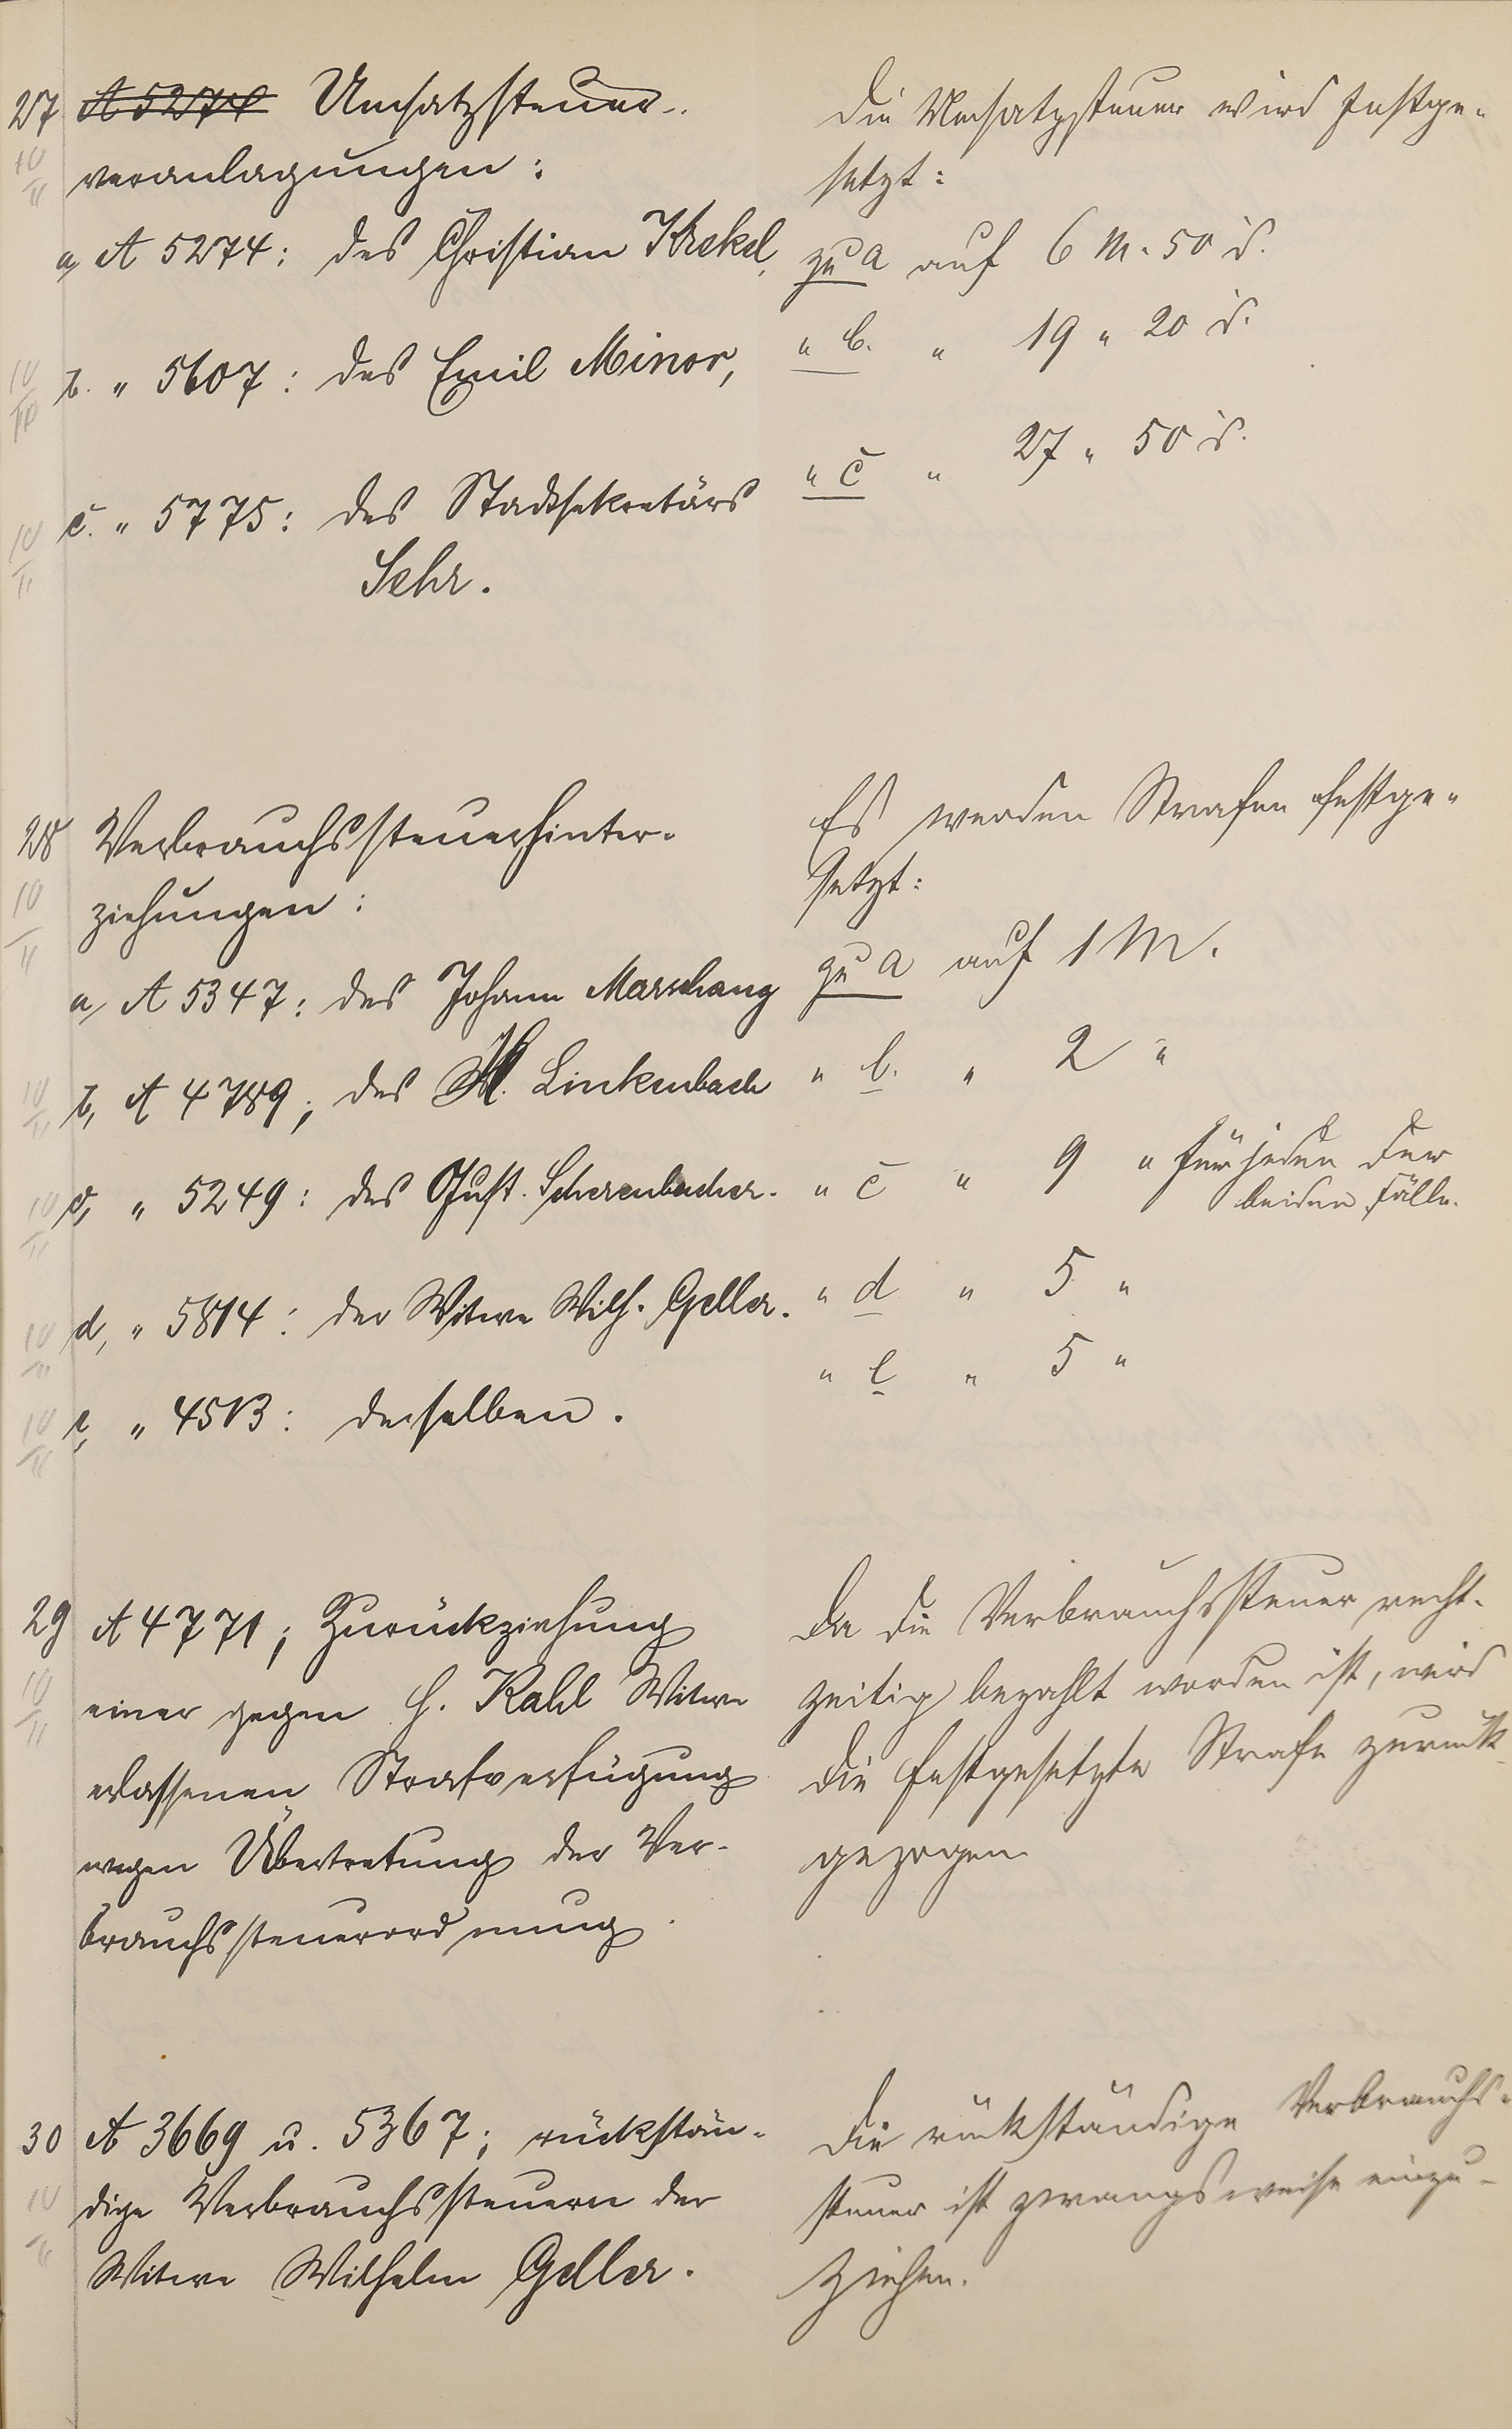 27 A 5274 Umsatzsteuer-
10/11 veranlagungen:
a, A 5274: des Christian Krekel,
10/11 b. " 5607: des Emil Minor,
10/11 c. " 5775: des Stadtsekretärs
Sehr.
Die Umsatzsteuer wird festge-
setzt:
zu a auf 6 M. 50 d.
" b. " 19 " 20 d.
" c " 27 " 50 d.
28 Verbrauchssteuerhinter-
10/11 ziehungen:
a, A 5347: des Johann Marschang
10/11 b, A 4789; des Linkenbach
10/11 c, " 5249: des Gust. Scherenbacher.
10/11 d, " 5814: der Witwe Wilh. Geller.
10/11 e, " 4513: derselben.
Es werden Strafen festge-
setzt:
zu a auf 1 M.
" b. " 2 "
" c " 9 " für jeden der
beiden Fälle.
" d " 5 "
" e " 5 "
29 A 4771; Zurückziehung
10/11 einer gegen H. Kahl Witwe
erlassenen Strafverfügung
wegen Übertretung der Ver-
brauchssteuerordnung.
Da die Verbrauchssteuer recht-
zeitig bezahlt worden ist, wird
die festgesetzte Strafe zurück-
gezogen.
30 A 3669 u. 5367; rückstän-
10/11 dige Verbrauchssteuern der
Witwe Wilhelm Geller.
Die rückständige Verbrauchs-
steuer ist zwangsweise einzu-
ziehen.